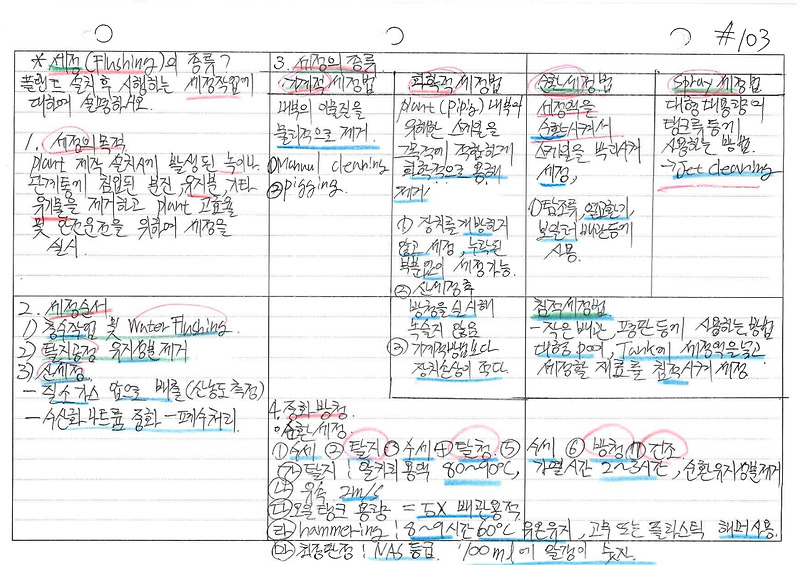 #103
* 세정(Flushing)의 종류?
플랜트 설치후 시행하는 세정작업에
대하여 설명하시오.
1. 세정의 목적
plant 제작 설치시에 발생된 녹이나
관계통에 침입된 분진, 유지분, 기타
유기물을 제거하고 plant 고효율
및 안전운전을 위하여 세정을
실시.
2. 세정순서
1) 충수작업 및 Water Flushing.
2) 탈지공정 유지성분 제거
3) 산세정.
- 질소가스 압으로 배출 (산농도 측정)
- 수산화나트륨 중화 - 폐수처리.
3. 세정의 종류
기계적 세정법
내부의 이물질을
물리적으로 제거.
① Manual cleaning
② pigging.
화학적 세정법
plant (piping) 내부의
유해한 스케일을
그 목적에 적합하게
화학적으로 용해
제거.
① 장치를 개방하지
않고 세정, 누락된
부분없이 세정가능.
② 산세정후
방청을 실시해
녹슬지 않음
③ 기계적방법보다
장치손상이 적다.
순환세정법
세정액을
순환시켜서
스케일을 박리시켜
세정.
① 탑조류, 열교환기,
보일러 배관등에
사용.
Spray 세정법
대형 대용량의
탱크류 등에
사용하는 방법.
→ Jet cleaning
침적세정법
- 작은 배관, 프로판등에 사용하는 방법
대형 pool, Tank에 세정액을 넣고
세정할 재료를 침적시켜 세정.
4. 중화 방청.
· 순환세정
① 수세 ② 탈지 ③ 수세 ④ 탈청 ⑤ 수세 ⑥ 방청 ⑦ 건조
㉮ 탈지 : 알카리용액 80~90℃, 가열시간 2~3시간, 순환유지성분제거
㉯ 유속 2m/s
㉰ 오일탱크 용량 = 5X 배관용적
㉱ hammering : 8~9시간 60℃ 유온유지, 고무 또는 플라스틱 해머사용.
㉲ 최종판정 : NAS 등급. 100ml에